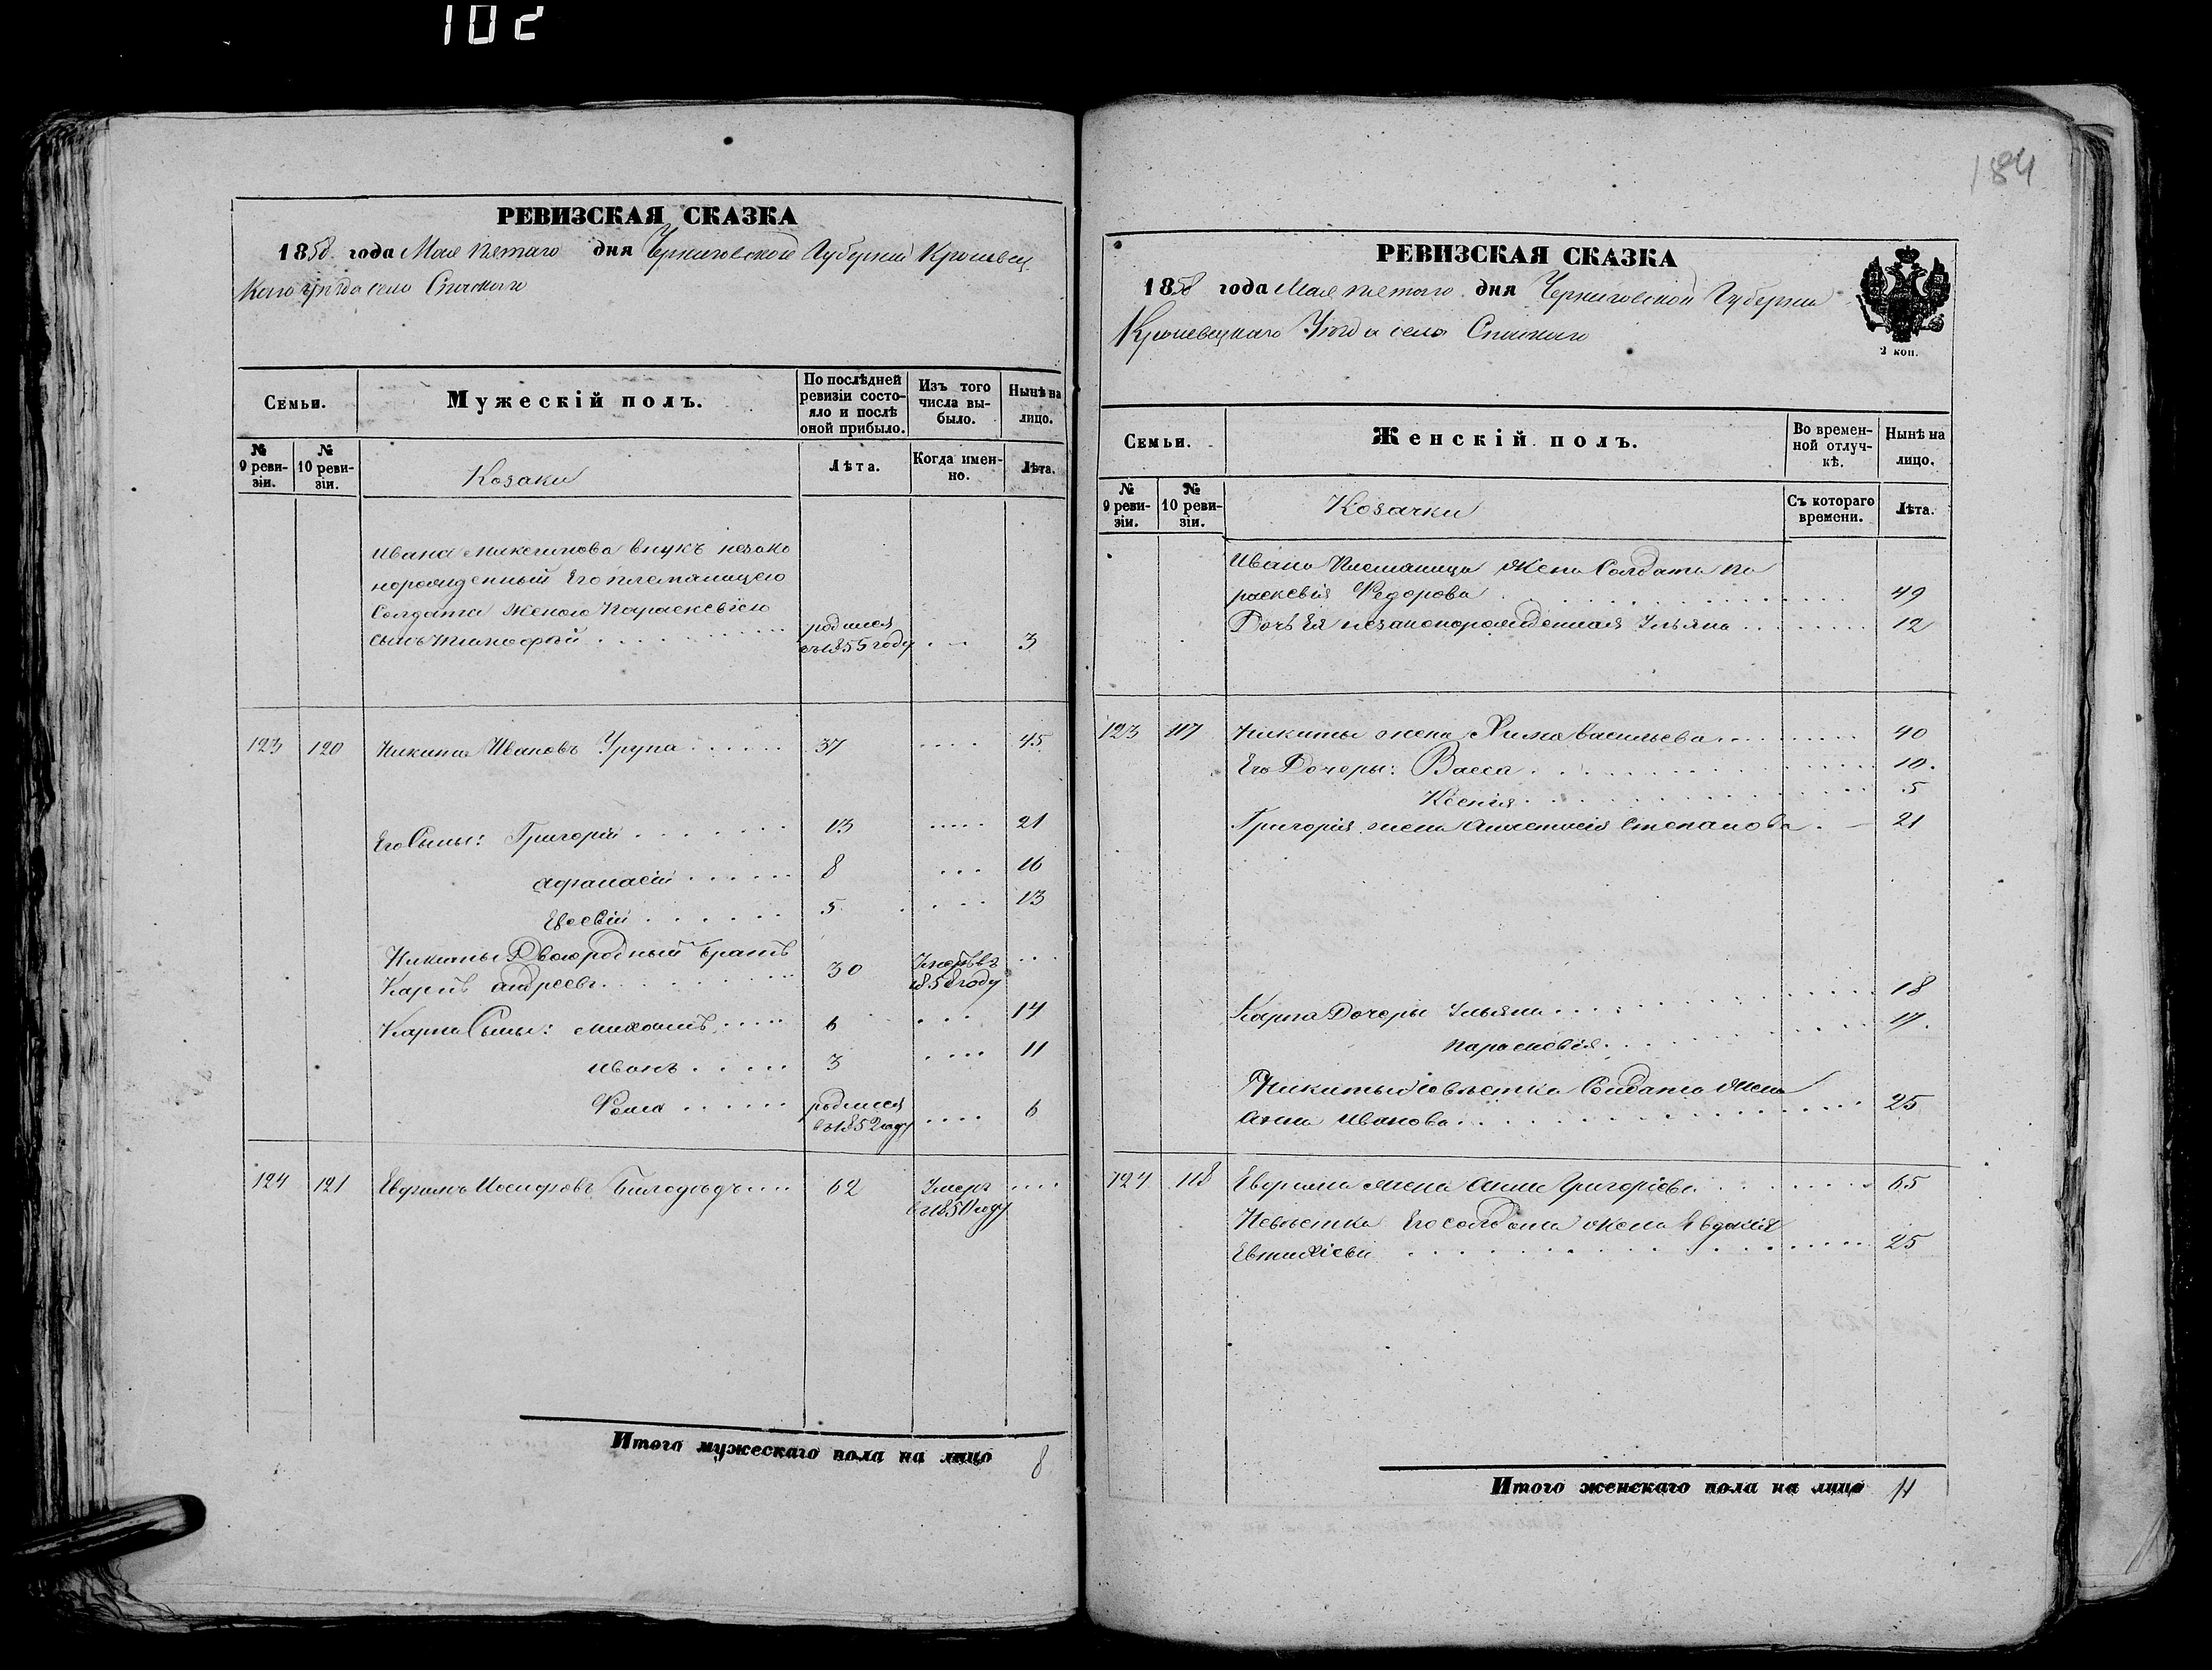 102
184
РЕВИЗСКАЯ СКАЗКА
1858 года Мая пятаго дня Черниговской Губерніи Кролевец
каго уѣзда села Спаскаго
Семьи.
Мужескій полъ.
По послѣдней ревизіи состояло и послѣ оной прибыло.
Изъ того числа выбыло.
Нынѣ на лицо.
№ 9 ревизіи.
№ 10 ревизіи.
Козаки
Лѣта.
Когда именно.
Лѣта.
Ивана Максимова внукъ незако
норожденный Его племяницею
Солдата женою Параскевіею
сынъ Тимофѣй родился
въ 1855 году 3
123 120 Никита Ивановъ 37 45
Его Сыны: Григорій 13 21
Афанасій 8 16
Евсевій 5 13
Никиты Двоюродный братъ
Карпъ Андреевъ 30 Умеръ въ
1858 году
Карпа Сыны: Михаилъ 6 14
Иванъ 3 11
Фома родился
въ 1852 году 6
124 121 62 Умеръ
Итого мужескаго пола на лицо 8
РЕВИЗСКАЯ СКАЗКА
1858 года Мая пятаго дня Черниговской Губерніи
Кролевецкаго Уѣзда села Спаскаго
2 коп.
Семьи.
Женскій полъ.
Во временной отлучкѣ.
Нынѣ на лицо.
№ 9 ревизіи.
№ 10 ревизіи.
Козачки
Съ котораго времени.
Лѣта.
Ивана Племяница жена Солдата Па
раскевія Федорова 49
Дочь Ея незаконорожденная Ульяна 12
123 117 Никиты жена Васильева 40
Его Дочеры: Васса 10
Ксенія 5
Григорія жена Анастасія Степанова 21
Карпа Дочеры Ульяна 18
Парасковія 17
Никиты невѣстка Солдата жена
Анна Иванова 25
124 118 жена Анна Григоріева 65
Невѣстка Его солдата жена Евдокія
Евтихіева 25
Итого женскаго пола на лицо 11